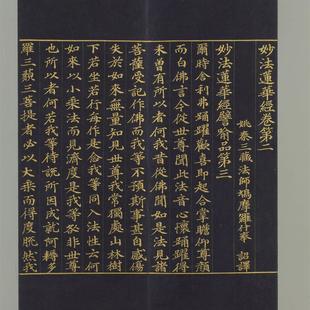 妙法蓮華經卷第二
姚秦三藏法師鳩摩羅什奉 詔譯
妙法蓮華經譬喻品第三
爾時舍利弗踊躍歡喜即起合掌瞻仰尊顏
而白佛言今從世尊聞此法音心懷踊躍得
未曾有所以者何我昔從佛聞如是法見諸
菩薩受記作佛而我等不預斯事甚自感傷
失於如來無量知見世尊我常獨處山林樹
下若坐若行每作是念我等同入法性云何
如來以小乘法而見濟度是我等咎非世尊
也所以者何若我等待說所因成就阿耨多
羅三藐三菩提者必以大乘而得度脫然我